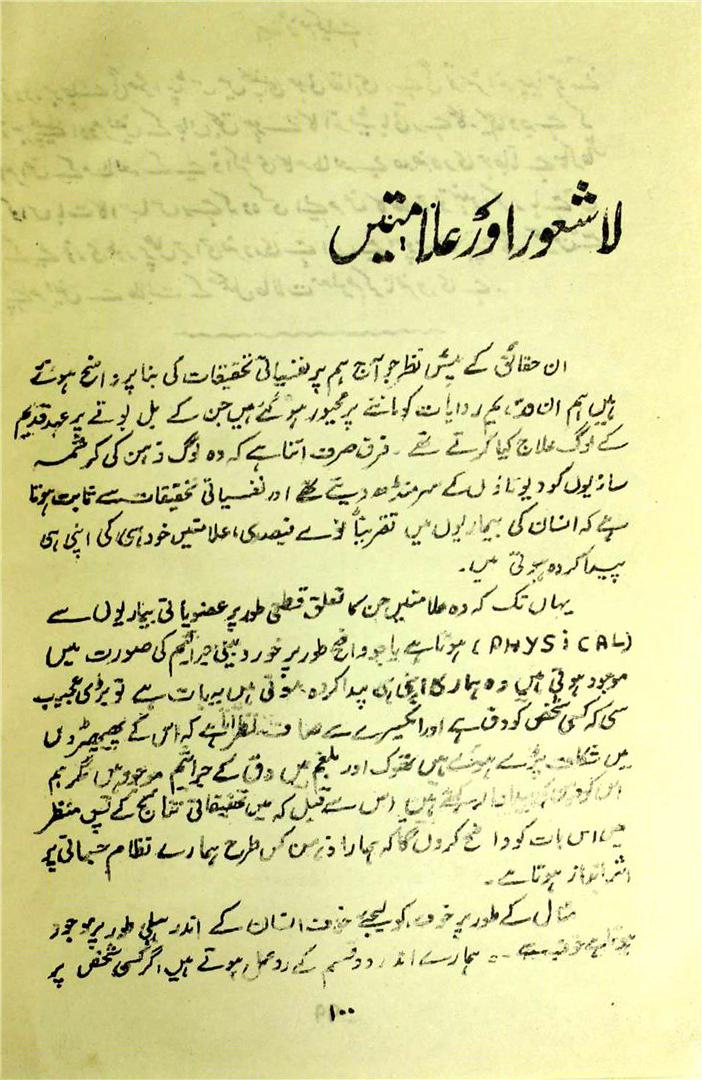 لاشعور اور علامتیں
ان حقائق کے پیش نظر جو آج ہم پر نفسیاتی تحقیقات کی بنا پر واضح ہوئے
ہیں ہم ان قدیم روایات کو ماننے پر مجبور ہو گئے ہیں جن کے بل بوتے پر عہد قدیم
کے لوگ علاج کیا کرتے تھے ۔ فرق صرف اتنا ہے کہ وہ لوگ ذہن کی کرشمہ
سازیوں کو دیوتاؤں کے سر منڈھ دیتے تھے اور نفسیاتی تحقیقات سے ثابت ہوتا
ہے کہ انسان کی بیماریوں میں تقریباً نوے فیصدی علامتیں خود اسی کی اپنی ہی
پیدا کردہ ہوتی ہیں۔
یہاں تک کہ وہ علامتیں جن کا تعلق قطعی طور پر عضویاتی بیماریوں سے
(PHYSiCAL) ہوتا ہے یا جو واضح طور پر خوردبینی جراثیم کی صورت میں
موجود ہوتی ہیں وہ ہماری اپنی ہی پیدا کردہ ہوتی ہیں یہ بات ہے تو بڑی عجیب
سی کہ کسی شخص کو دق ہے اور ایکسرے سے صاف نظر آتا ہے کہ اس کے پھیپھڑوں
میں شگاف پڑے ہوئے ہیں تھوک اور بلغم میں دق کے جراثیم موجود ہیں مگر ہم
اس کو ہیں اس سے قبل کہ میں تحقیقاتی نتائج کے پس منظر
میں اس بات کو واضح کروں گا کہ ہمارا ذہن کس طرح ہمارے نظام جسمانی پر
اثر انداز ہوتا ہے۔
مثال کے طور پر خوف کو لیجئے خوف انسان کے اندر جبلی طور پر موجود
ہوتا ہے ۔ ہمارے اندر دو قسم کے ردعمل ہوتے ہیں اگر کسی شخص پر
۱۰۰